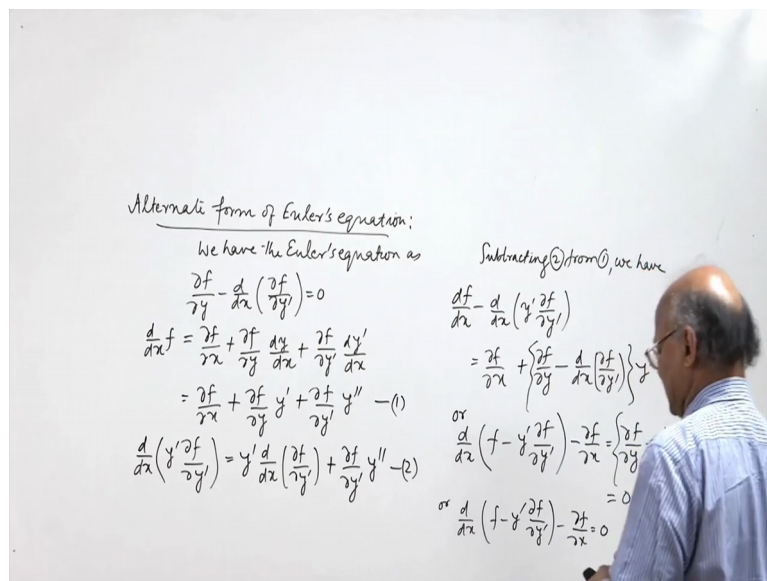 Alternati form of Euler's equation:
We have the Euler's equation as
∂f/∂y - d/dx (∂f/∂y') = 0
d/dx f = ∂f/∂x + ∂f/∂y dy/dx + ∂f/∂y' dy'/dx
= ∂f/∂x + ∂f/∂y y' + ∂f/∂y' y'' —(1)
d/dx (y' ∂f/∂y') = y' d/dx (∂f/∂y') + ∂f/∂y' y'' —(2)
Subtracting ② from ①, we have
df/dx - d/dx (y' ∂f/∂y')
= ∂f/∂x + {∂f/∂y - d/dx (∂f/∂y')} y
or
d/dx (f - y' ∂f/∂y') - ∂f/∂x = {∂f/∂y
= 0
or d/dx (f - y' ∂f/∂y') - ∂f/∂x = 0